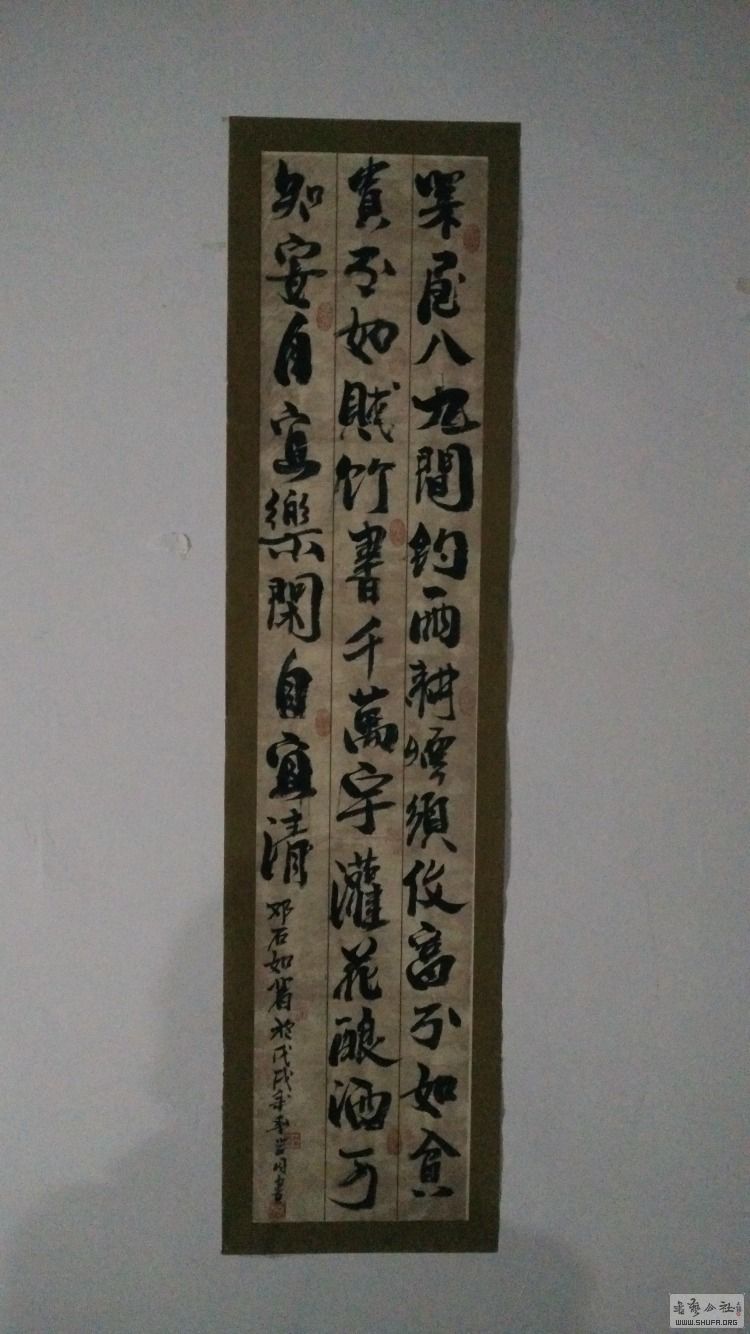 屋八九間钓雨耕煙須富不如貧
貴不如賤竹書千萬字灌花釀酒可
知安自宜樂閑自宜清
邓石如於戊戌年書
書藝公社
WWW.SHUFA.ORG